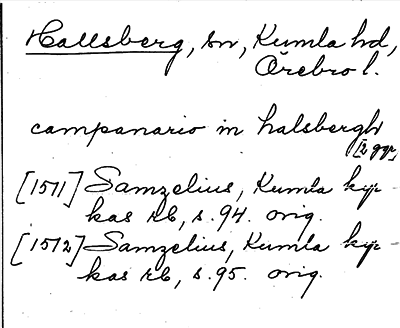 Hallsberg, sn, Kumla hd,
Örebro l.
campanario in halsbergh
[2 ggr]
[1511] Samzelius, Kumla kyr-
kas rb, s. 94. orig.
[1512] Samzelius, Kumla kyr-
kas rb, s. 95. orig.